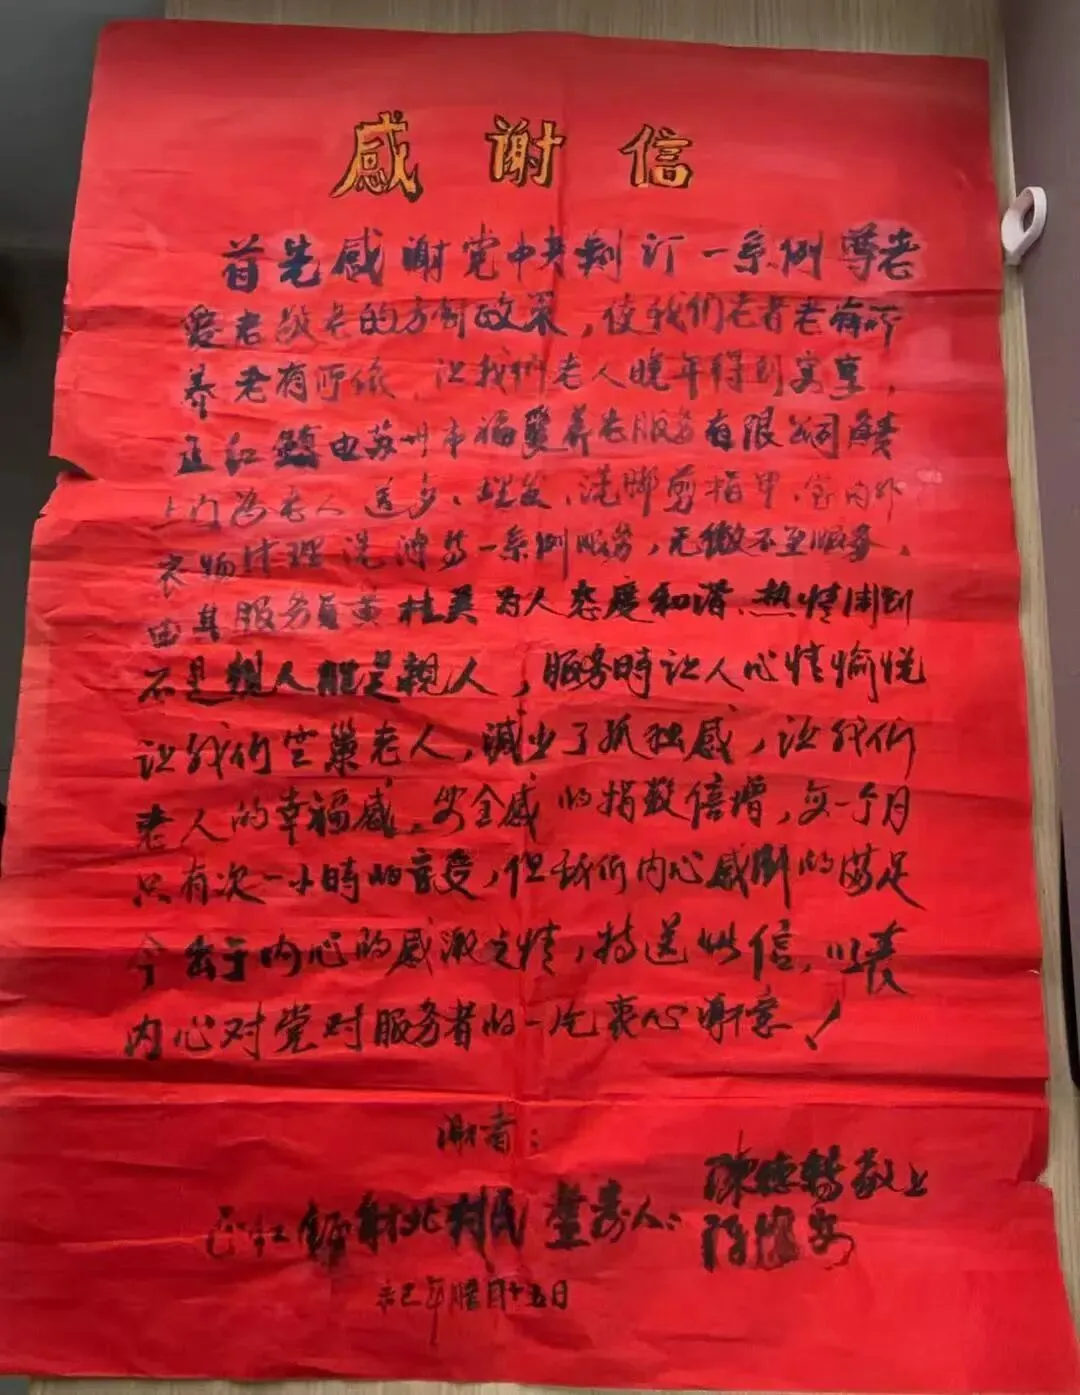 感谢信
首先感谢党中央制订一系例尊老
爱老敬老的方针政策，使我们老者老有所
养老有所依，让我们老人晚年得到安享，
正红镇由苏州市福星养老服务有限公司
上门为老人送乡、理发、洗脚剪指甲、室内外
衣物清理洗涤等一系例服务，无微不至服务，
由其服务員黄桂美为人态度和谐、热情周到
不是親人胜是親人，服务時让人心情愉悦
让我们空巢老人，减少了孤独感，让我们
老人的幸福感，安全感的指数倍增，每一个月
只有次一小時的享受，但我们内心感到的满足
今出于内心的感激之情，特送此信，以表
内心对党对服务者的一片衷心谢意！
谢者：
正红镇 北村民 老人： 陳德 敬上
年腊月十五日